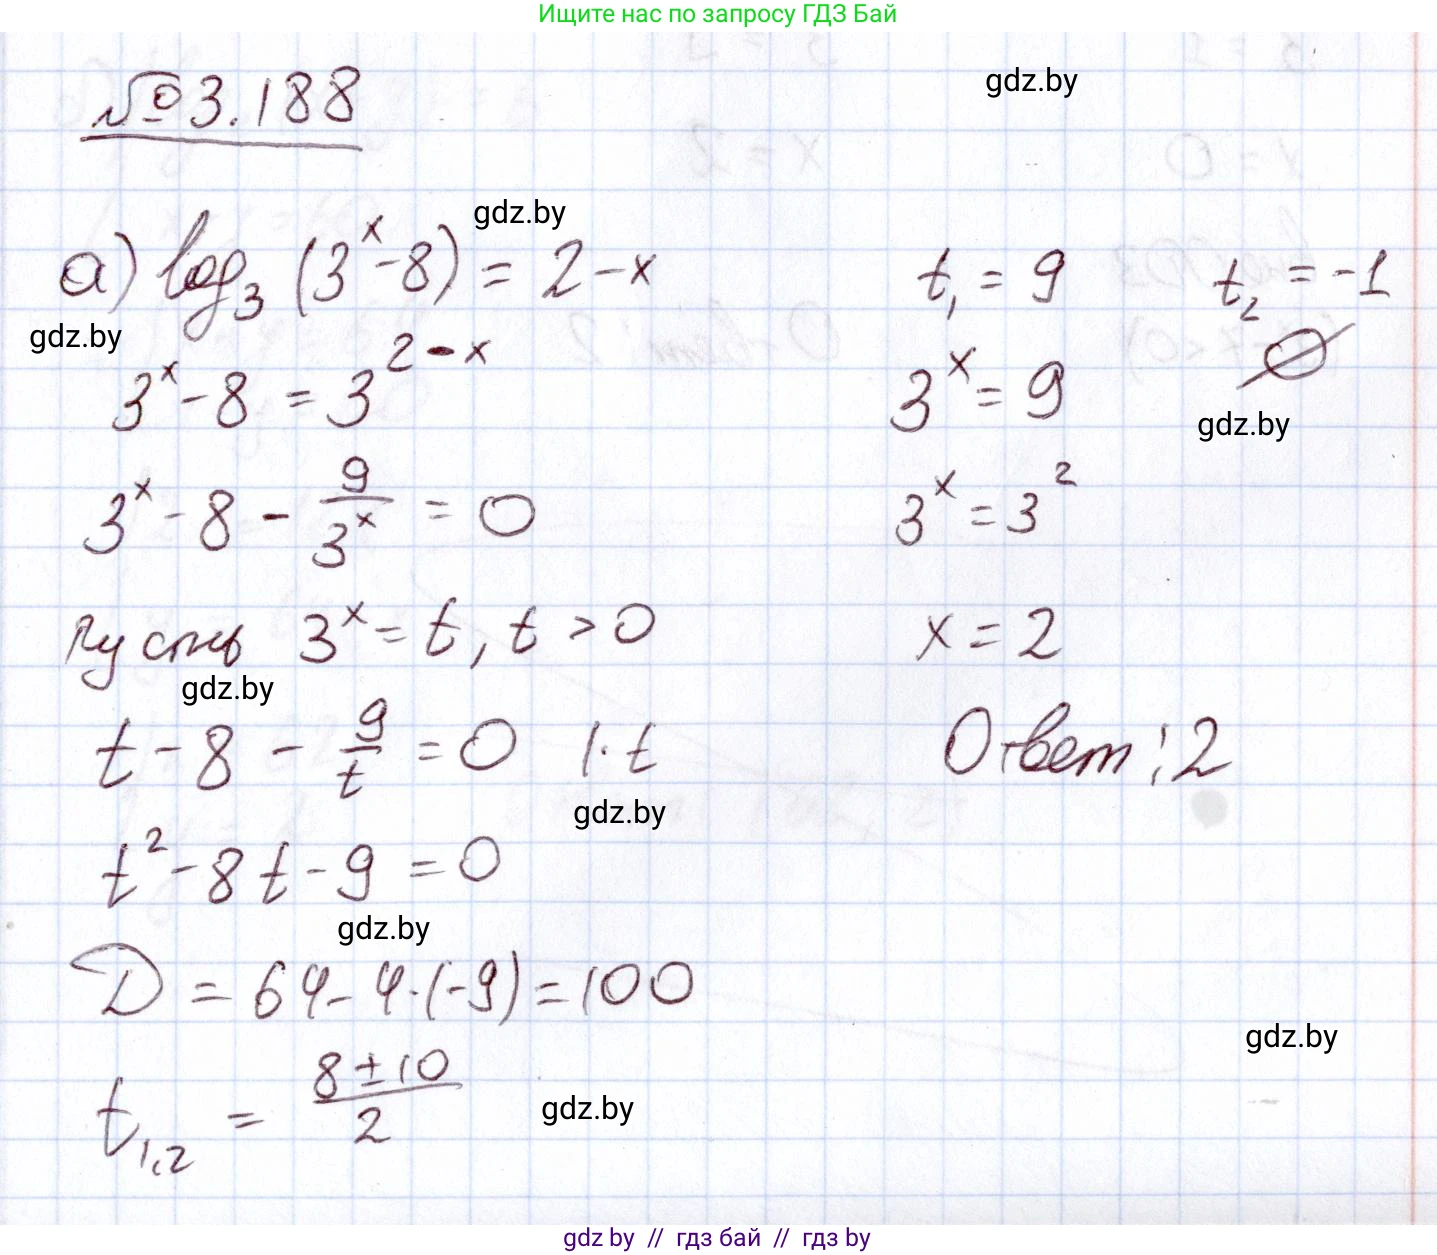 Ищите нас по запросу ГДЗ Бай
№3.188
gdz.by
gdz.by
а) log₃(3ˣ-8) = 2-x
gdz.by
3ˣ-8 = 3²⁻ˣ
3ˣ-8 - 9/3ˣ = 0
Пусть 3ˣ = t, t > 0
gdz.by
t - 8 - 9/t = 0 |·t
gdz.by
t² - 8t - 9 = 0
gdz.by
D = 64 - 4·(-9) = 100
t₁,₂ = (8±10)/2
gdz.by
t₁ = 9 t₂ = -1
3ˣ = 9 ∅
gdz.by
3ˣ = 3²
x = 2
Ответ: 2
gdz.by
gdz by // гдз бай // гдз by